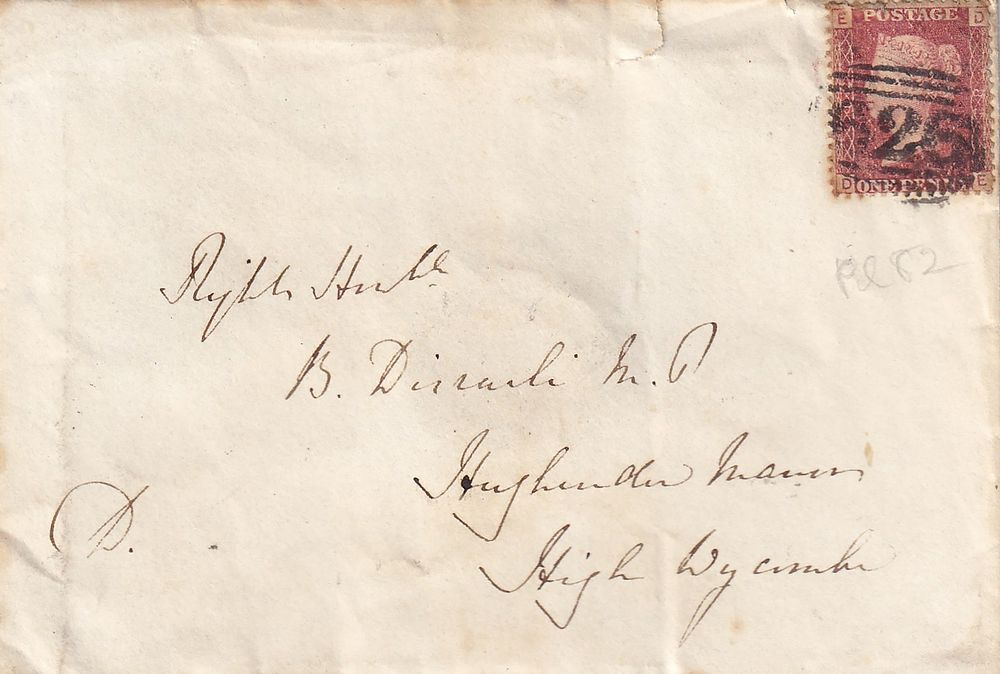 E POSTAGE D
26
D ONE PENNY E
Pl 82
Right Honble
B. Disraeli M.P
Hughenden Manor
High Wycombe
D.